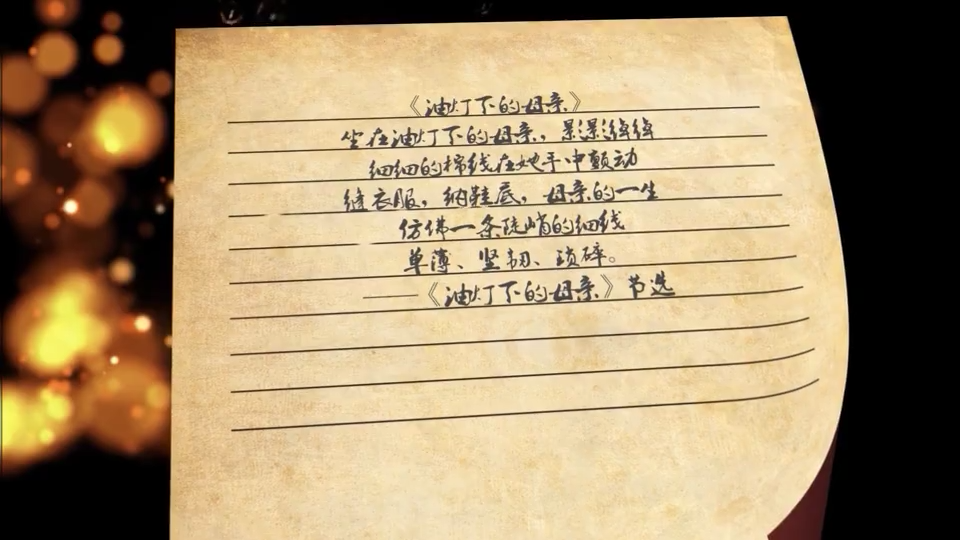 《油灯下的母亲》
坐在油灯下的母亲，影影绰绰
细细的棉线在她手中颤动
缝衣服，纳鞋底，母亲的一生
仿佛一条陡峭的细线
单薄、坚韧、琐碎。
——《油灯下的母亲》节选